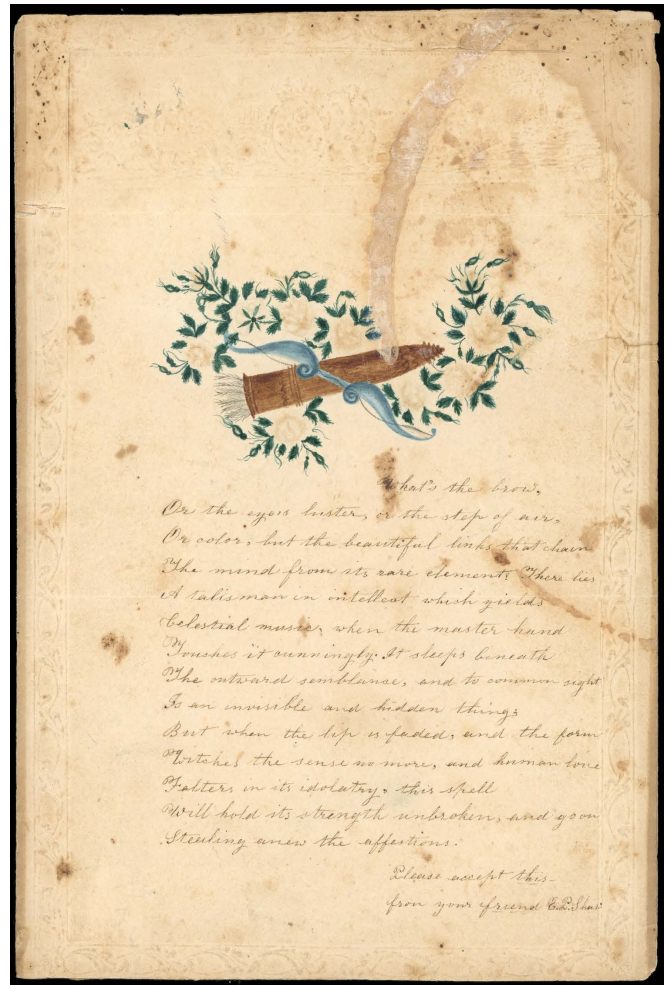 What's the brow,
Or the eyes luster, or the step of air,
Or color, but the beautiful links that chain
The mind from its rare element? There lies
A talisman in intellect which yields
Celestial music, when the master hand
Touches it cunningly. It sleeps beneath
The outward semblance, and to common sight
Is an invisible and hidden thing;
But when the lip is faded, and the form
Witches the sense no more, and human love
Falters in its idolatry, this spell
Will hold its strength unbroken, and go on
Stealing anew the affections.
Please accept this
from your friend Shaw